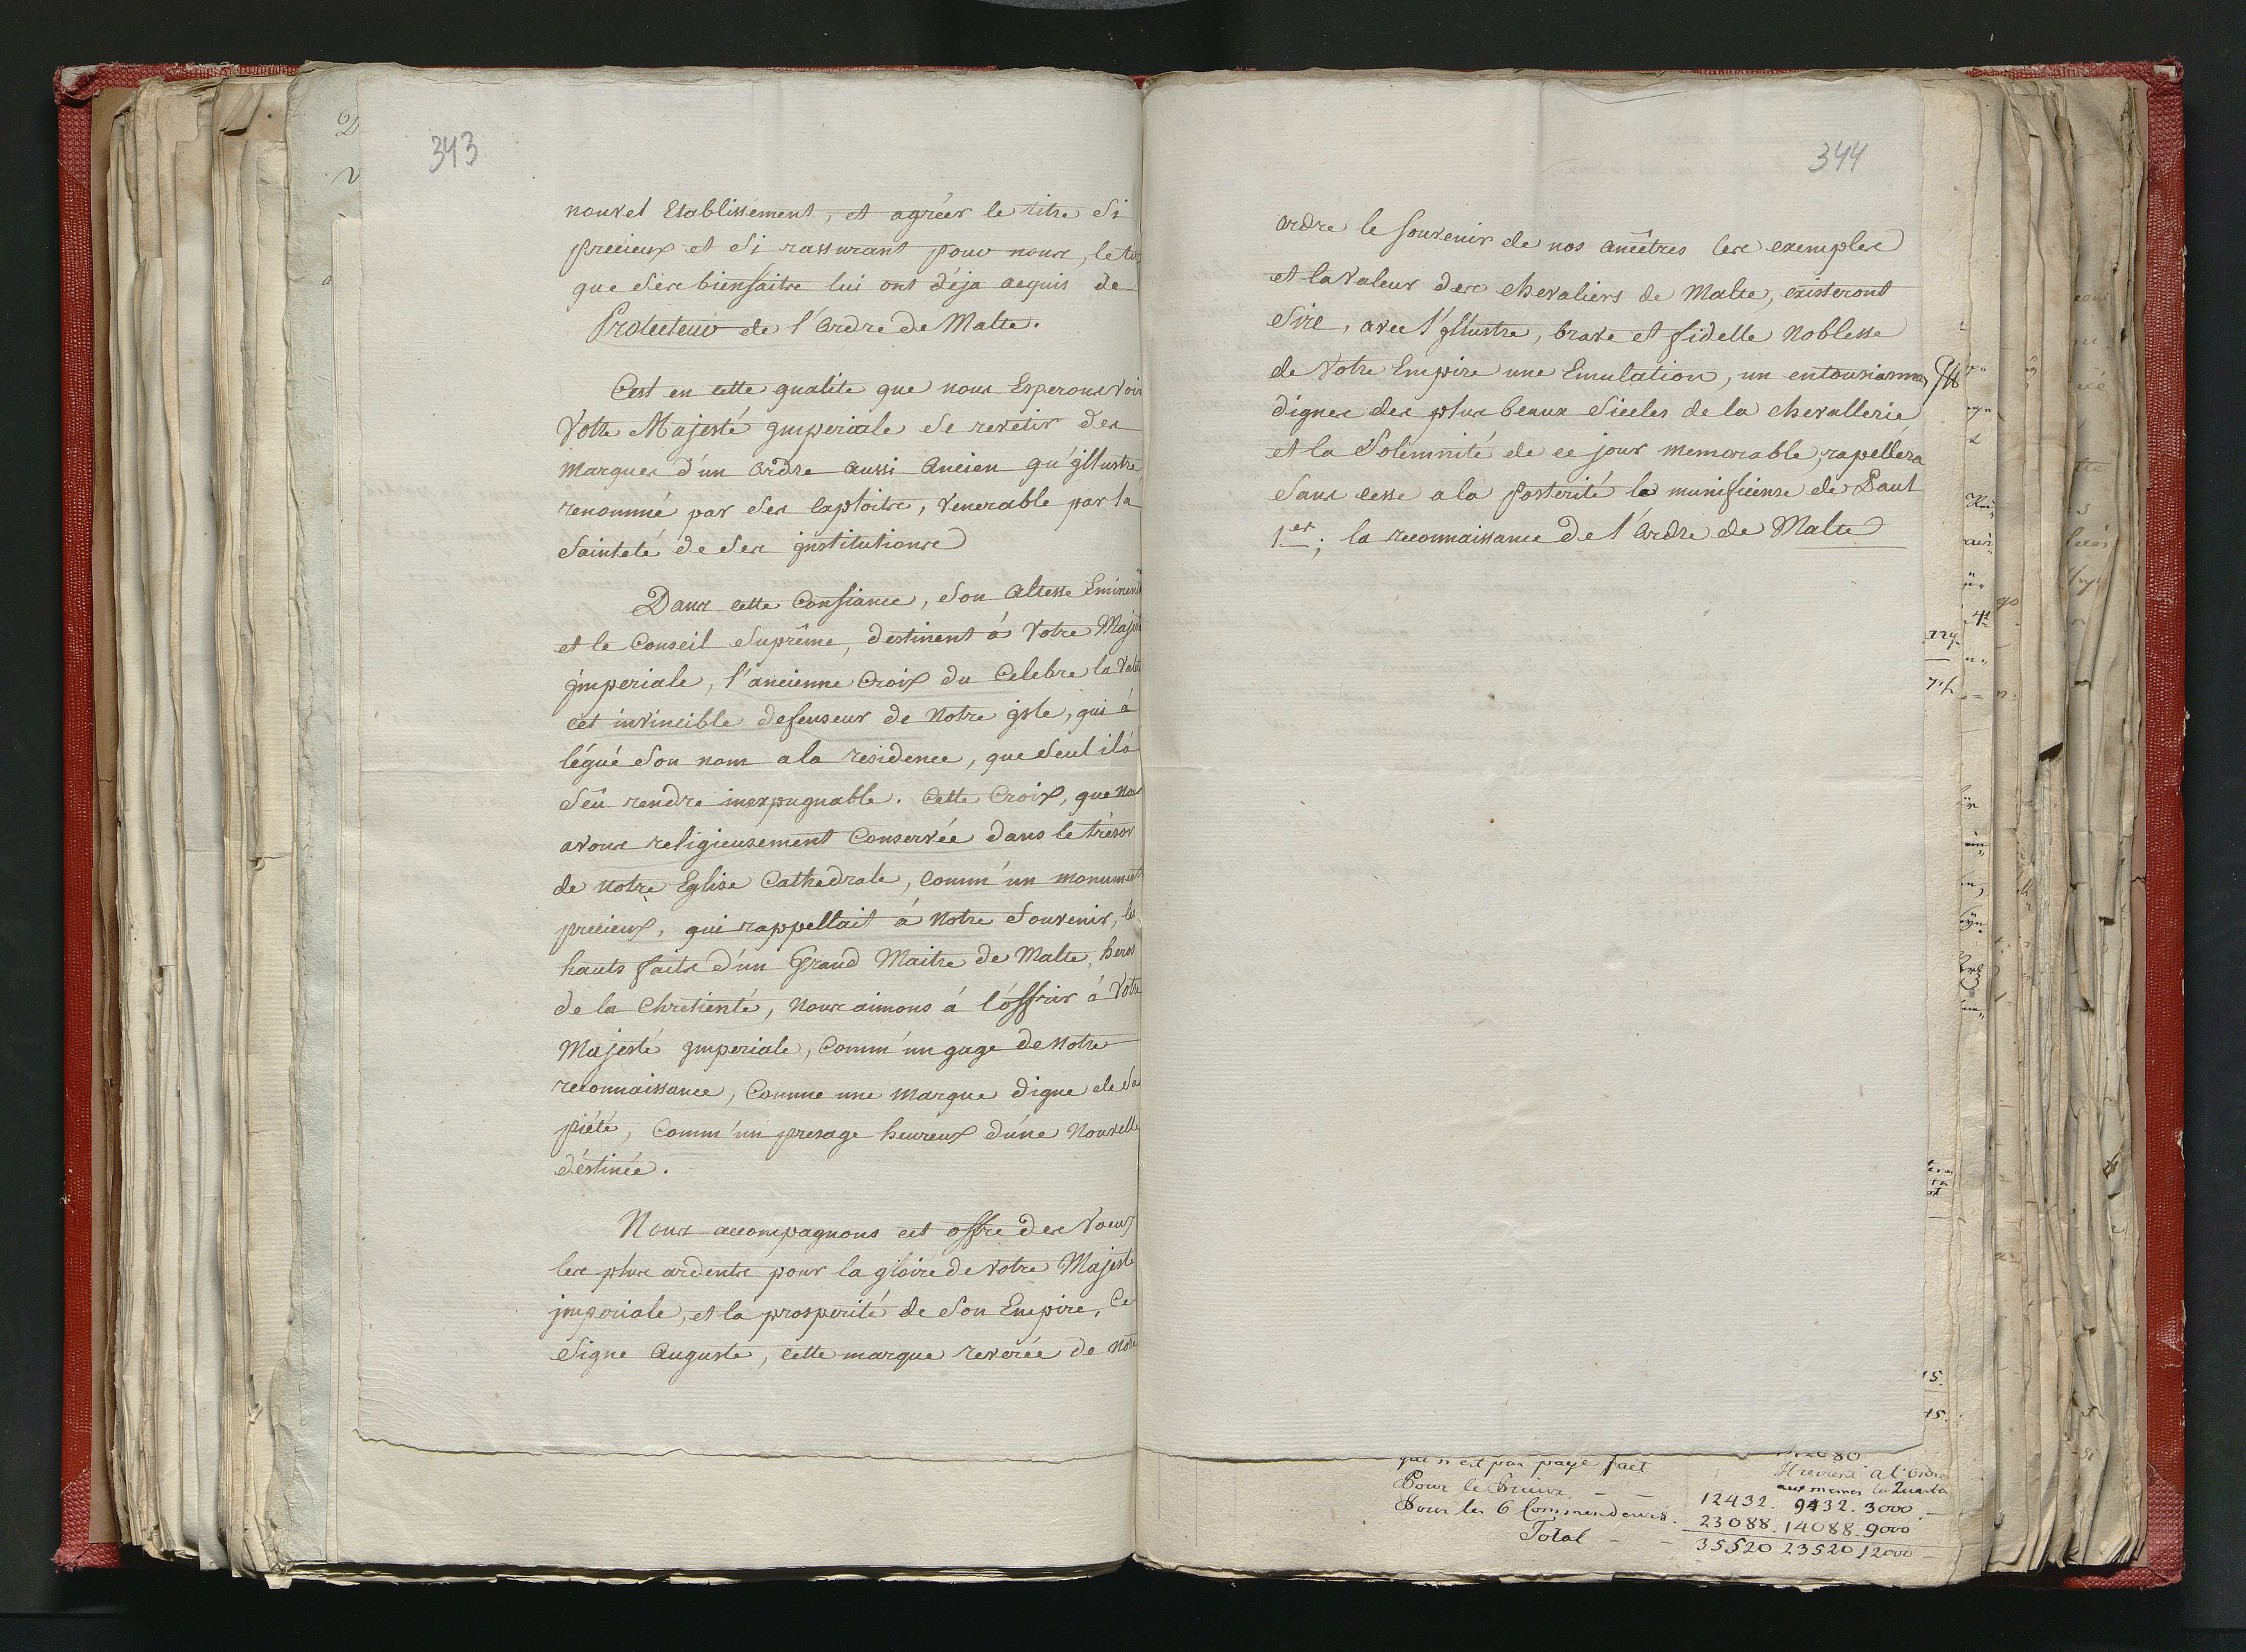 343
nouvel Etablissement, et agréer le titre si
precieux et si rassurant pour nous, le
que ses bienfaits lui ont déja acquis de
Protecteur de l'Ordre de Malte.
Cest en cette qualite que nous Esperons voir
Votre Majesté imperiale se revetir des
marques d'un Ordre aussi Ancien qu'illustre
renommé par ses exploits, venerable par la
sainteté de ses institutions
Dans cette Confiance, son Altesse Eminent
et le Conseil Suprême, destinent à Votre Majesté
imperiale, l'ancienne Croix du Celebre la
cet invincible defenseur de Notre isle, qui à
légué son nom a la residence, que seul il à
sçû rendre inexpugnable. Cette Croix, que nous
avons religieusement Conservée dans le trésor
de notre Eglise Cathedrale, Comm'un monument
precieux, qui rappellait à Notre souvenir, les
hauts faits d'un Grand Maitre de Malte, heros
de la Chretienté, Nous aimons à l'offrir à Votre
Majesté imperiale, Comm'un gage de Notre
reconnaissance, Comme une marque digne de Sa
piété, Comm'un presage heureux d'une Nouvelle
déstinée.
Nous accompagnons cet offre des voeux
les plus ardents pour la gloire de Votre Majesté
imperiale, et la prosperité de son Empire, Ce
signe Auguste, cette marque reverée de notre
344
ordre le souvenir de nos ancêtres les exemples
et la Valeur des chevaliers de Malte, exciteront
Sire, avec l'illustre, brave et fidelle Noblesse
de Votre Empire une Emulation, un entousiasme
dignes des plus beaux siecles de la chevallerie
et la Solemnité de ce jour memorable, rapellera
sans cesse a la posterité la munificense de Paul
1er; la reconnaissance de l'Ordre de Malte
qui n'est pas payé fait
Il revient a l'Ordre
Pour le Prieur - - 12432. 9432. 3000
Pour les 6 Commandeurs. 23088. 14088. 9000
Total - - 35520 23520 12000